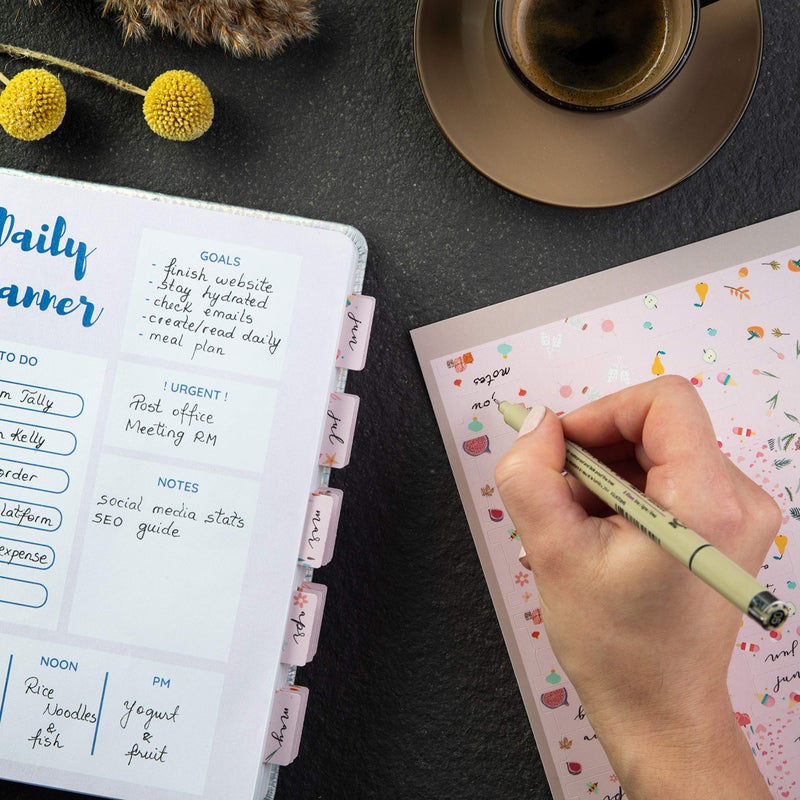 Daily
anner
TO DO
m Tally
n Kelly
order
latform
expense
GOALS
- finish website
- stay hydrated
- check emails
- create/read daily
- meal plan
! URGENT !
Post office
Meeting RM
NOTES
social media stats
SEO guide
NOON
Rice
Noodles
&
fish
PM
Yogurt
&
fruit
jun
jul
mar
apr
may
notes
jun